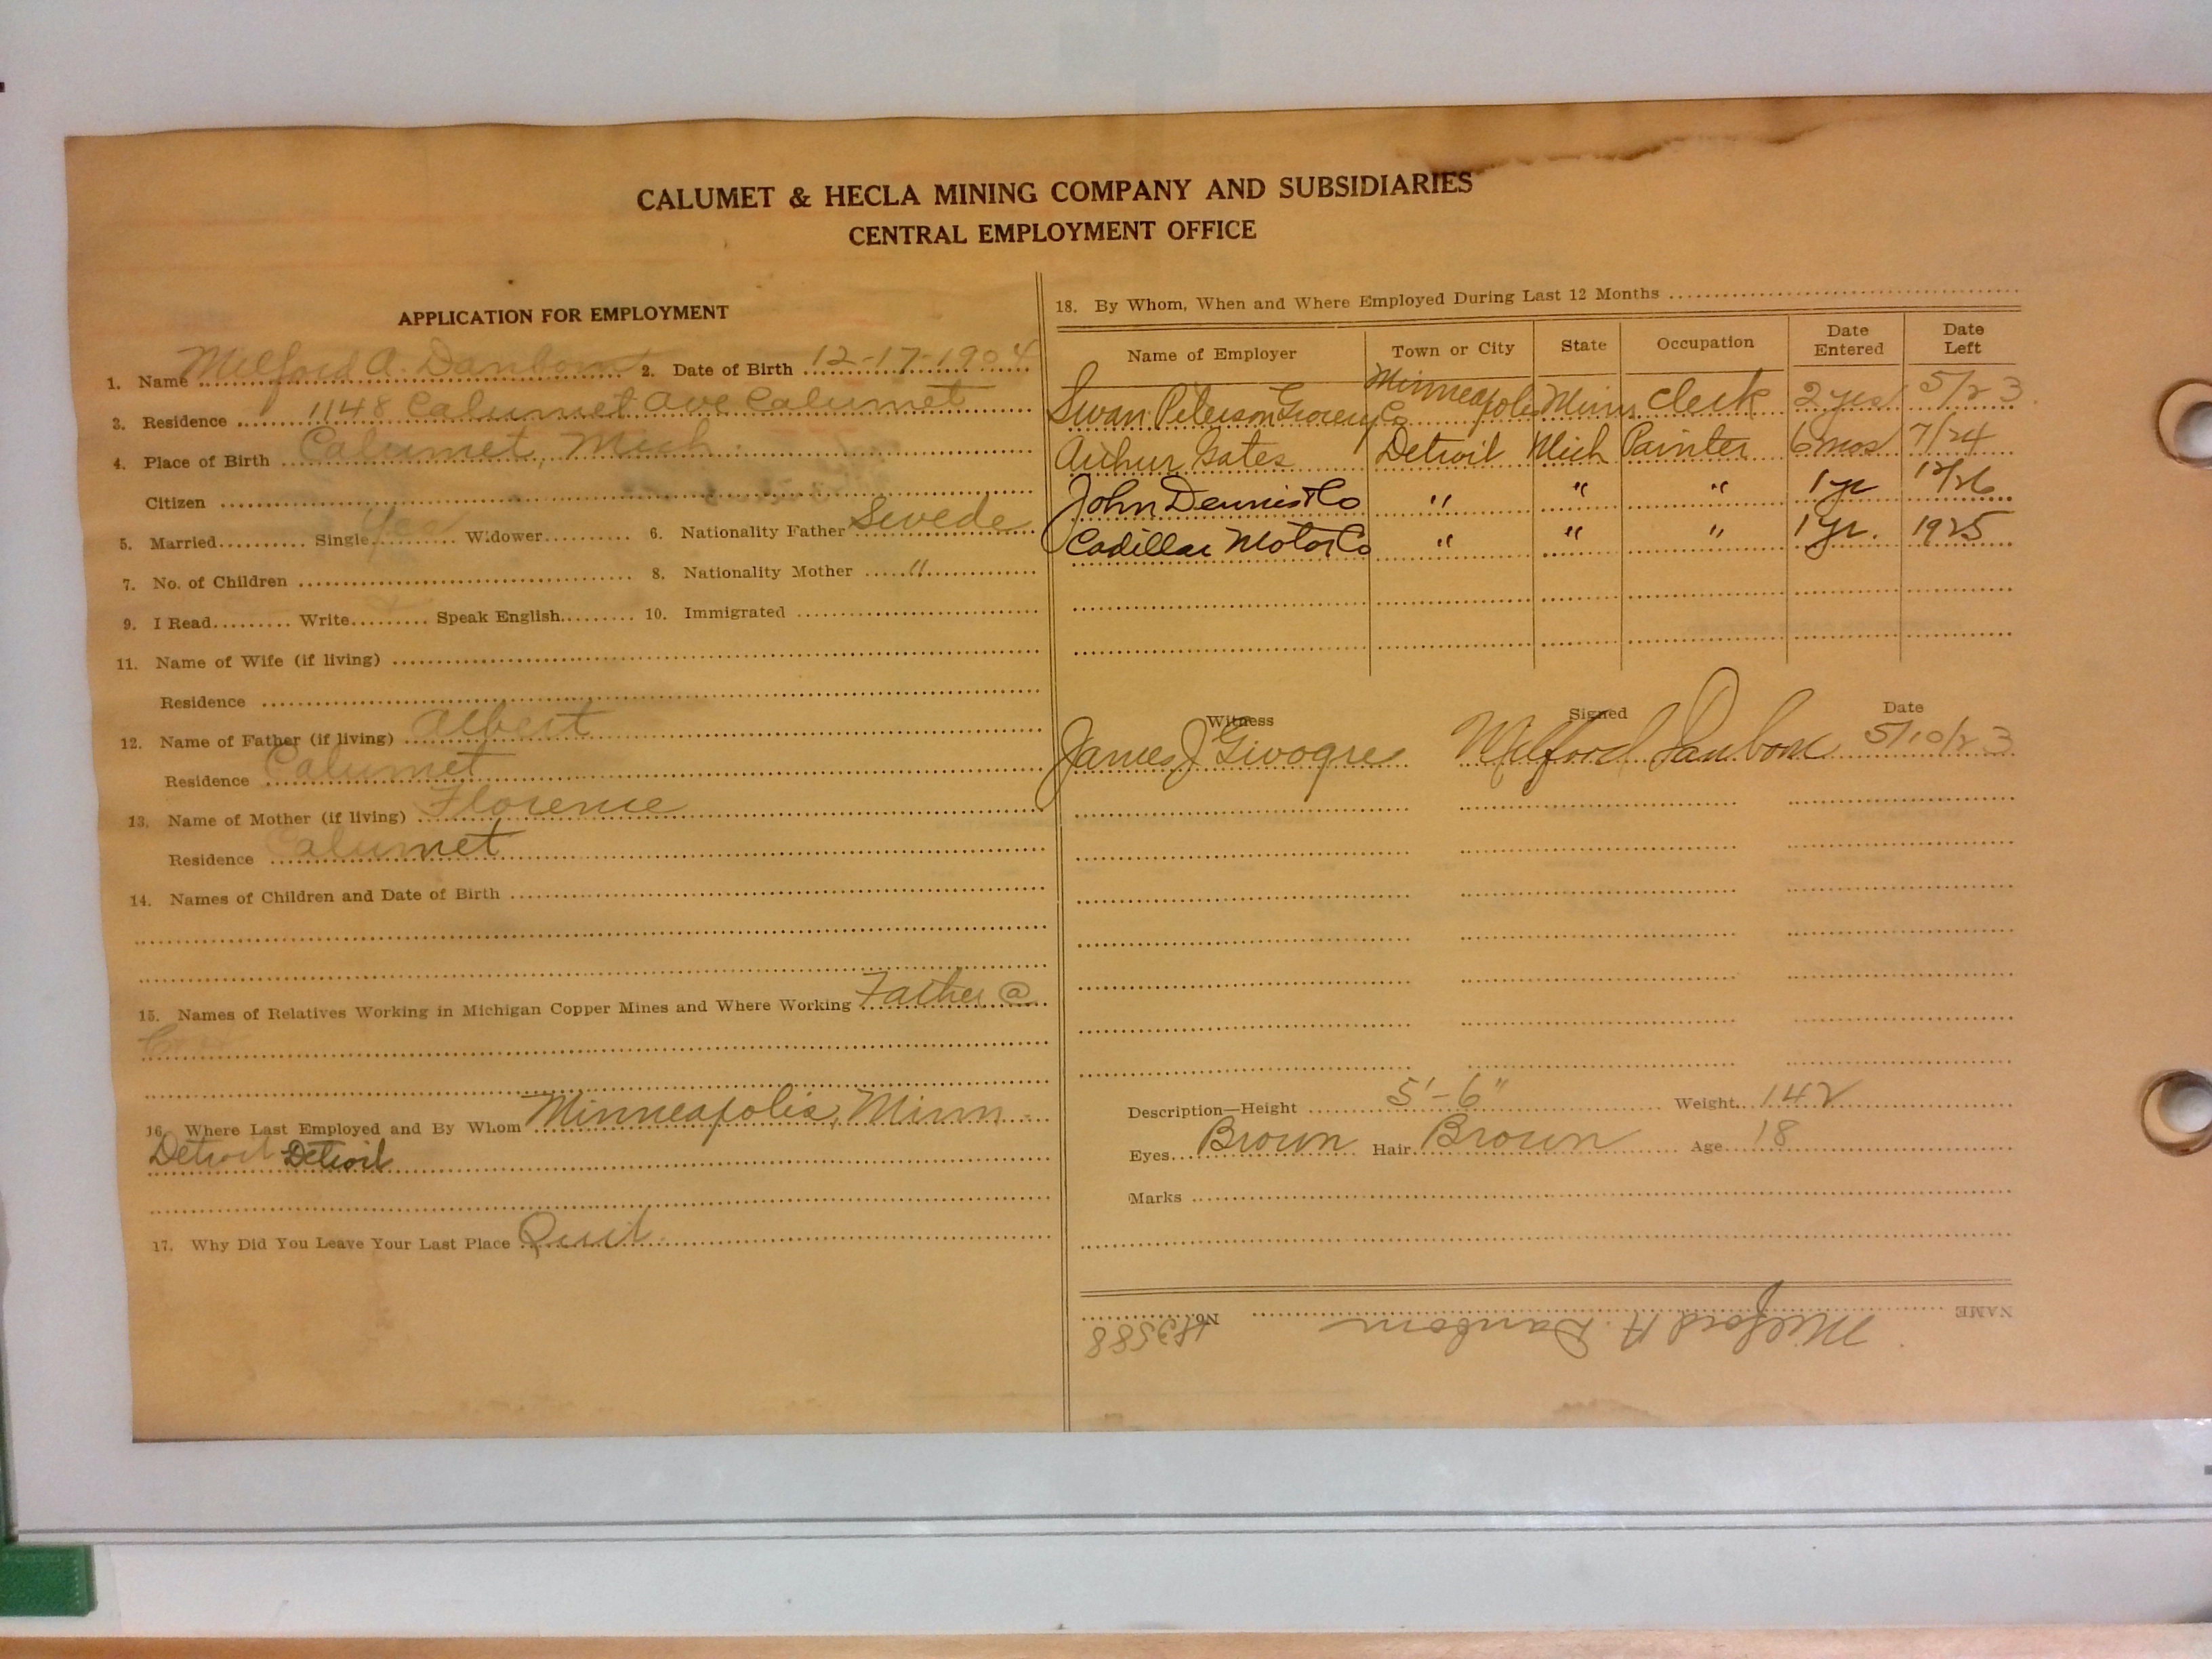 CALUMET & HECLA MINING COMPANY AND SUBSIDIARIES
CENTRAL EMPLOYMENT OFFICE
APPLICATION FOR EMPLOYMENT
1. Name Milford A. Danbom 2. Date of Birth 12-17-1904
3. Residence 1148 Calumet Ave Calumet
4. Place of Birth Calumet, Mich.
Citizen
5. Married Single Yes Widower 6. Nationality Father Swede
7. No. of Children 8. Nationality Mother "
9. I Read Write Speak English 10. Immigrated
11. Name of Wife (if living)
Residence
12. Name of Father (if living) Albert
Residence Calumet
13. Name of Mother (if living) Florence
Residence Calumet
14. Names of Children and Date of Birth
15. Names of Relatives Working in Michigan Copper Mines and Where Working Father @
16. Where Last Employed and By Whom Minneapolis, Minn.
Detroit Detroit
17. Why Did You Leave Your Last Place Quit.
18. By Whom, When and Where Employed During Last 12 Months
Name of Employer Town or City State Occupation Date Entered Date Left
Swan Peterson Grocery Co Minneapolis Minn Clerk 2 yrs 5/23
Arthur Gates Detroit Mich Painter 6 mos 7/24
John Dennis & Co " " " 1 yr 12/26
Cadillac Motor Co " " " 1 yr. 1925
Witness Signed Date
James J Givogre Milford Danbom 5/10/23
Description—Height 5'-6" Weight 142
Eyes Brown Hair Brown Age 18
Marks
NAME Milford A. Danbom No.